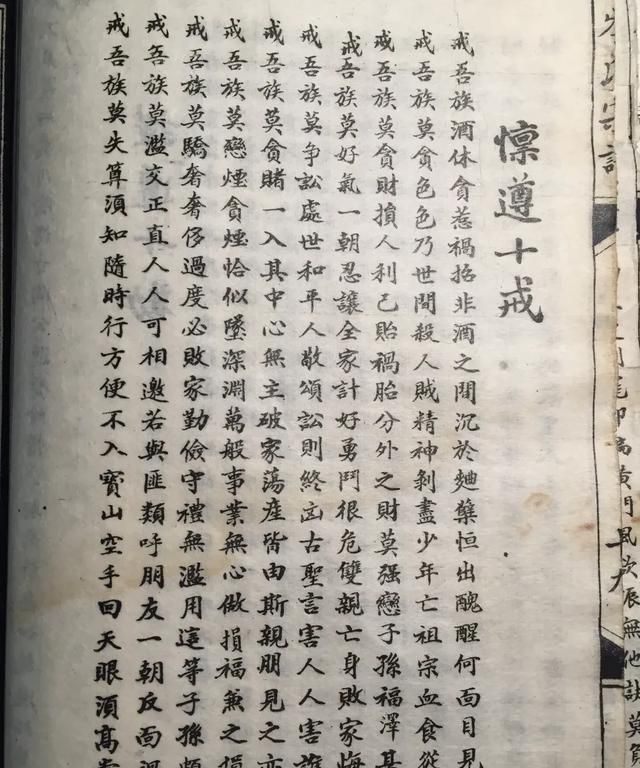 懍遵十戒
戒吾族酒休貪惹禍招非酒之間沉於麯蘗恒出醜醒何面目見
戒吾族莫貪色色乃世間殺人賊精神剝盡少年亡祖宗血食從
戒吾族莫貪財損人利己貽禍胎分外之財莫强戀子孫福澤甚
戒吾族莫好氣一朝忍讓全家計好勇鬥很危雙親亡身敗家悔
戒吾族莫争訟處世和平人敬頌訟則終凶古聖言害人人害誰
戒吾族莫貪賭一入其中心無主破家蕩産皆由斯親朋見之亦
戒吾族莫戀煙貪煙恰似墜深淵萬般事業無心做損福兼之損
戒吾族莫驕奢奢侈過度必敗家勤儉守禮無濫用這等子孫頗
戒吾族莫濫交正直人人可相邀若與匪類呼朋友一朝反面
戒吾族莫失算須知隨時行方便不入寳山空手回天眼須髙